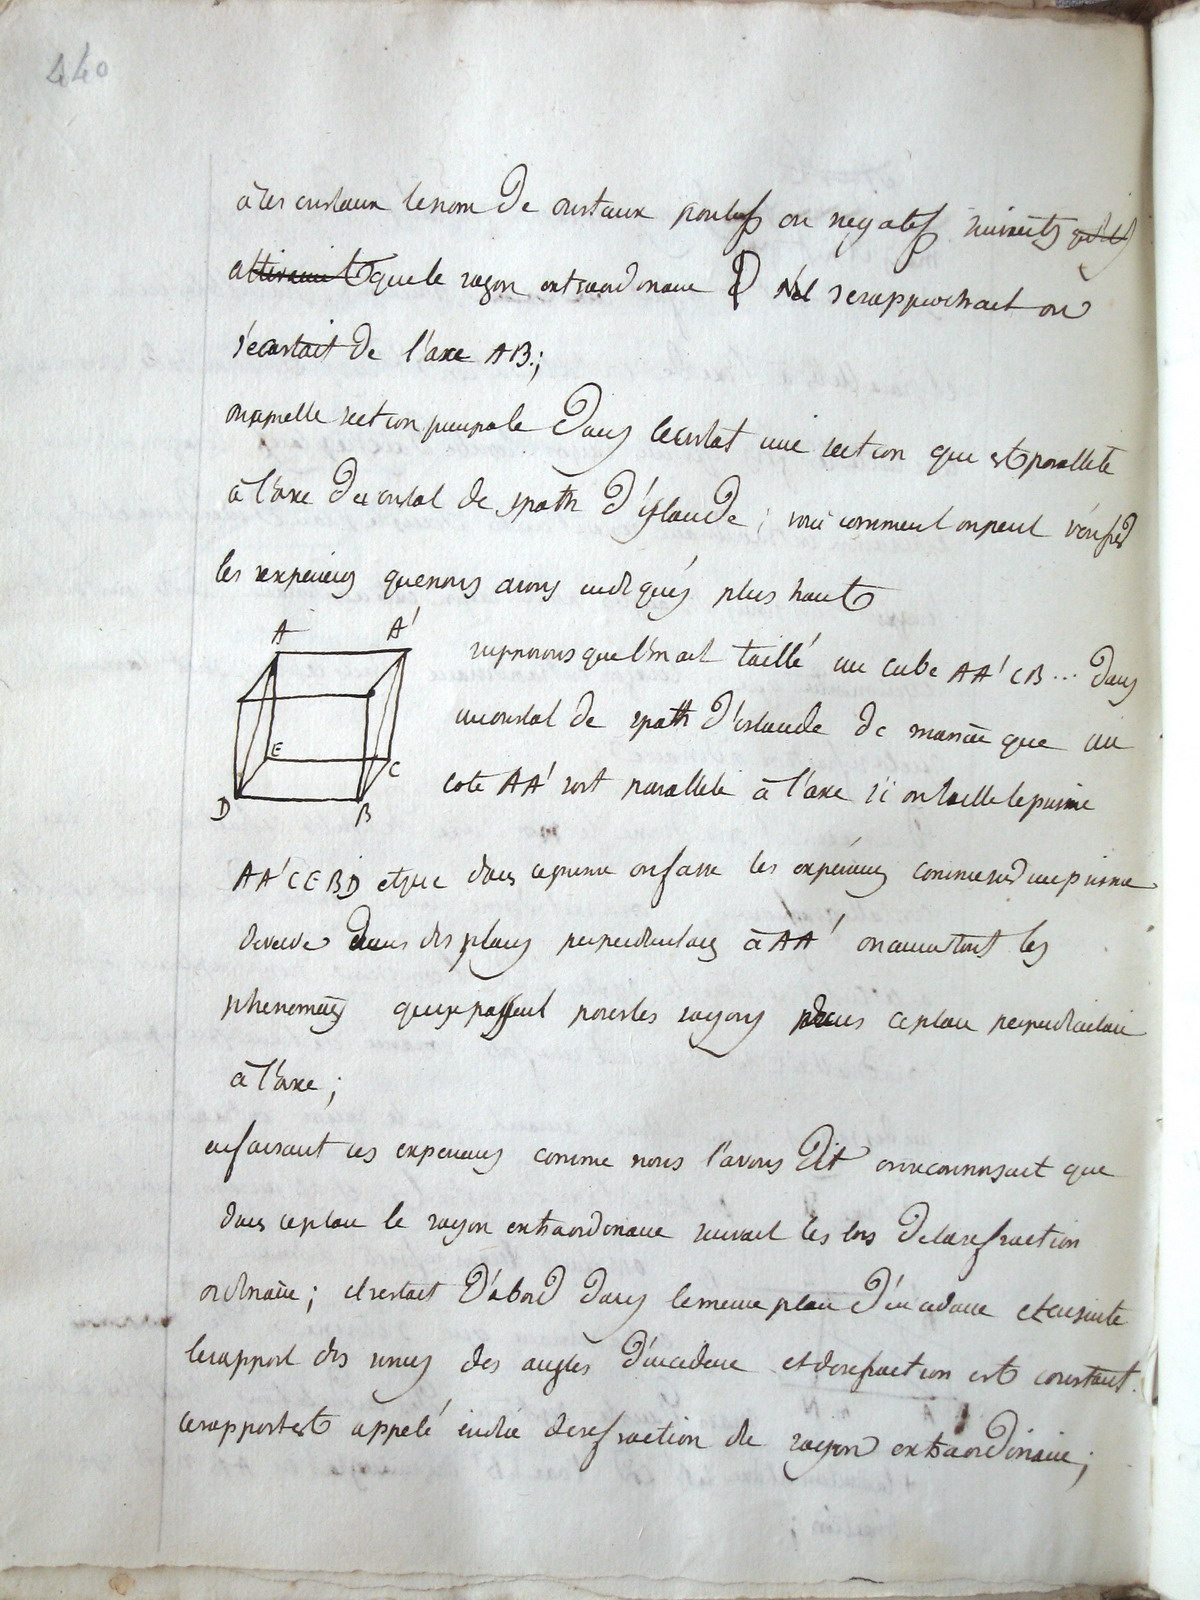 440
à ces cristaux le nom de cristaux positifs ou négatifs suivant qu'ils
attiraient que le rayon extraordinaire se rapprochait ou
s'écartait de l'axe AB;
on appelle section principale dans le cristal une section qui est parallele
à l'axe du cristal de spath d'islande; voici comment on peut vérifier
les experiences que nous avons indiqués plus haut
A A'
E
C
D B
supposons que l'on ait taillé un cube AA'CB... dans
un cristal de spath d'islande de maniere que un
coté AA' soit parallele à l'axe si on taille le prisme
AA'CEBD et que dans ce prisme on fasse les expériences comme sur un prisme
de verre dans des plans perpendiculaires à AA' on aura tout les
phenomenes qui se passent pour les rayons dans ce plan perpendiculaire
à l'axe;
en faisant ces experiences comme nous l'avons dit on reconnaissait que
dans ce plan le rayon extraordinaire suivait les lois de la refraction
ordinaire; il restait d'abord dans le meme plan d'incidence et ensuite
le rapport des sinus des angles d'incidence et de refraction est constant.
ce rapport est appelé indice de refraction de rayon extraordinaire;